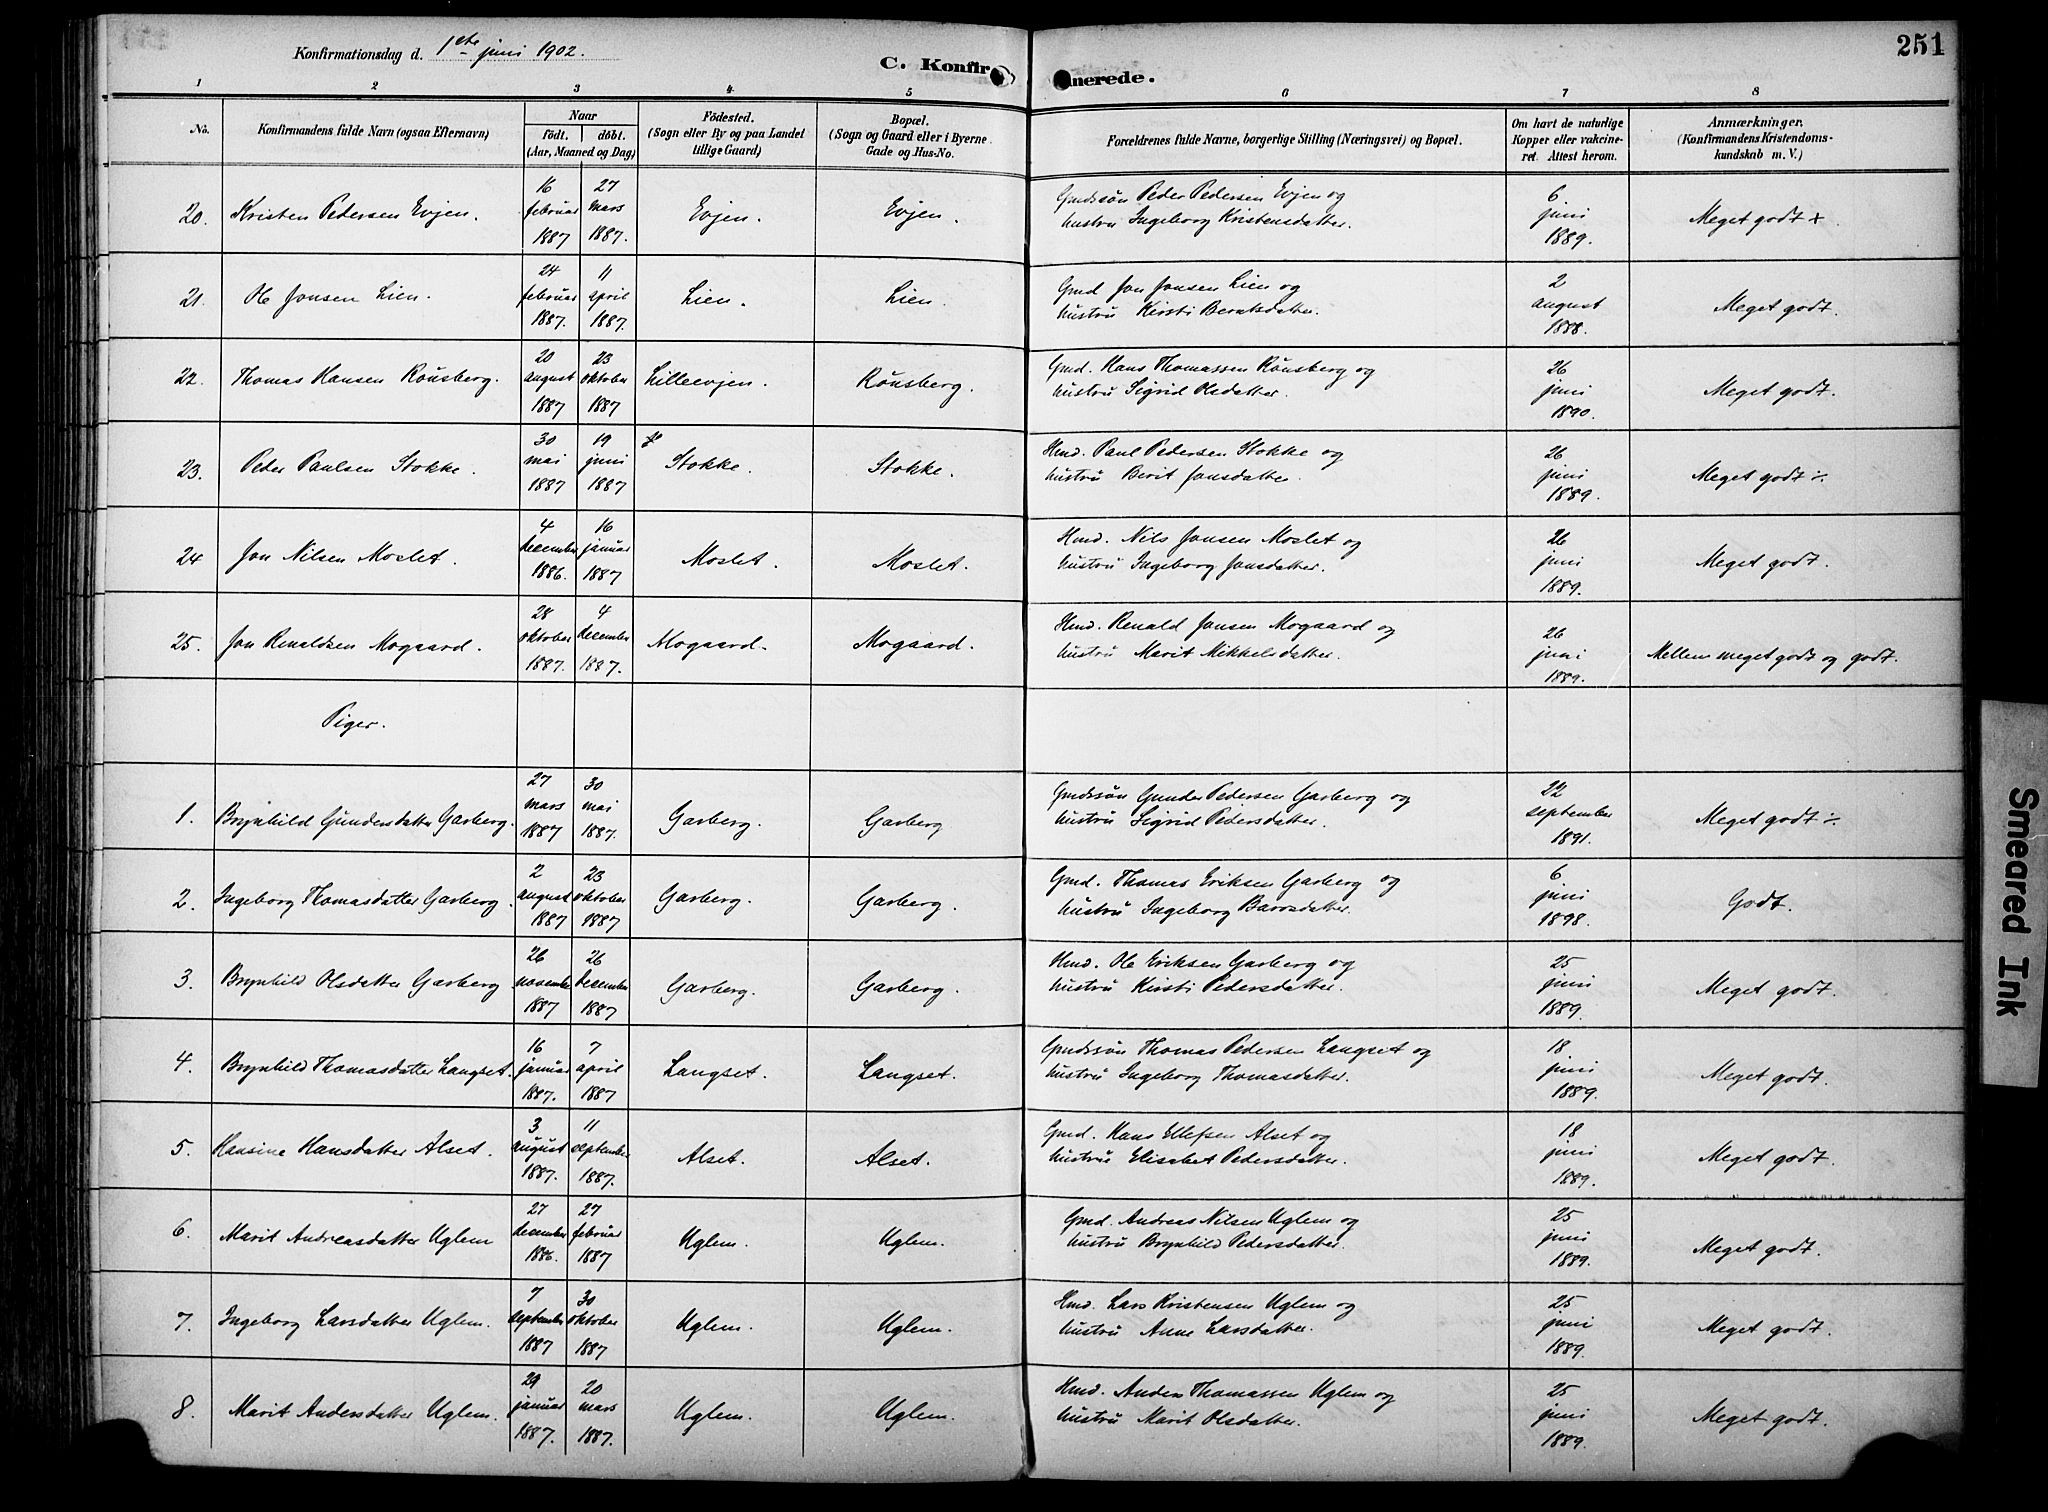 251
Konfirmationsdag d. 1ste juni 1902.
C. Konfir nerede.
1 2 3 4 5 6 7 8
No.
Konfirmandens fulde Navn (ogsaa Efternavn)
Naar
födt. döbt.
(Aar, Maaned og Dag)
Födested.
(Sogn eller By og paa Landet
tillige Gaard)
Bopæl.
(Sogn og Gaard eller i Byerne
Gade og Hus-No.
Forældrenes fulde Navne, borgerlige Stilling (Næringsvei) og Bopæl.
Om havt de naturlige
Kopper eller vakcine-
ret. Attest herom.
Anmærkninger.
(Konfirmandens Kristendoms-
kundskab m. V.)
20. Kristen Pedersen Evjen. 16 februar 1887 27 mars 1887. Evjen. Evjen. Gmdssön Peder Pedersen Evjen og
hustru Ingeborg Kristensdatter. 6 juni 1889. Meget godt +.
21. Ole Jonsen Lien. 24 februar 1887. 11 april 1887. Lien. Lien. Gmd Jon Jonsen Lien og
hustru Kirsti Berntsdatter. 2 august 1888. Meget godt.
22. Thomas Hansen Rönsberg. 20 august 1887 23 oktober 1887 Lilleevjen. Rönsberg. Gmd. Hans Thomassen Rönsberg og
hustru Sigrid Olsdatter. 26 juni 1890. Meget godt.
23. Peder Paulsen Stokke. 30 mai 1887 19 juni 1887 Stokke. Stokke. Hmd. Paul Pedersen Stokke og
hustru Berit Jonsdatter. 26 juni 1889. Meget godt ÷
24 Jon Nilsen Moslet. 4 december 1886. 16 januar 1887 Moslet. Moslet. Hmd. Nils Jonsen Moslet og
hustru Ingeborg Jonsdatter. 26 juni 1889. Meget godt.
25. Jon Renaldsen Mogaard. 28 oktober 1887. 4 december 1887. Mogaard. Mogaard. Hmd. Renald Jonsen Mogaard og
hustru Marit Mikkelsdatter. 26 juni 1889. Mellem meget godt og godt.
Piger.
1. Brynhild Gundersdatter Garberg. 27 mars 1887 30 mai 1887. Garberg. Garberg Gmdssön Gunder Pedersen Garberg og
hustru Sigrid Pedersdatter. 22 september 1891. Meget godt ÷
2. Ingeborg Thomasdatter Garberg. 2 august 1887 23 oktober 1887 Garberg. Garberg. Gmd. Thomas Eriksen Garberg og
hustru Ingeborg Barosdatter. 6 juni 1898. Godt.
3. Brynhild Olsdatter Garberg 26 november 1887 26 december 1887 Garberg. Garberg. Hmd. Ole Eriksen Garberg og
hustru Kirsti Pedersdatter. 25 juni 1889. Meget godt.
4. Brynhild Thomasdatter Langset. 16 januar 1887. 7 april 1887 Langset. Langset. Gmdssön Thomas Pedersen Langset og
hustru Ingeborg Thomasdatter. 18 juni 1889. Meget godt.
5. Hansine Hansdatter Alset. 3 august 1887. 11 september 1887. Alset. Alset. Gmd. Hans Ellefsen Alset og
hustru Elisabet Pedersdatter. 18 juni 1889. Meget godt.
6. Marit Andreasdatter Uglem 27 december 1886. 27 februar 1887 Uglem. Uglem. Gmd. Andreas Nilsen Uglem og
hustru Brynhild Pedersdatter. 25 juni 1889. Meget godt.
7. Ingeborg Larsdatter Uglem. 7 september 1887 30 oktober 1887 Uglem. Uglem. Hmd. Lars Kristensen Uglem og
hustru Anne Larsdatter. 25 juni 1889. Meget godt.
8. Marit Andersdatter Uglem. 29 januar 1887. 20 mars 1887. Uglem. Uglem. Hmd. Anders Thomassen Uglem og
hustru Marit Olsdatter. 25 juni 1889. Meget godt.
Smeared Ink